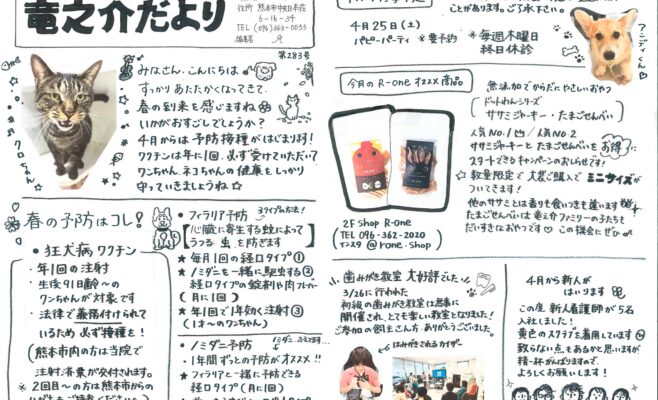 竜之介だより
住所 熊本市中央区本荘
6-16-34
TEL (096)363-0033
編集者
第283号
みなさん、こんにちは
すっかり あたたかくなってきて、
春の到来も感じますね
いかがおすごしでしょうか?
4月からは 予防接種がはじまります!
ワクチンは年に1回、必ず受けていただいて
ワンちゃん、ネコちゃんの健康をしっかり
守っていきましょうね☆
クロちゃん
春の予防はコレ!
・狂犬病 ワクチン
・年1回の注射
・生後91日齢~の
ワンちゃんが対象です
・法律で義務付けられて
いるため 必ず接種を!
(熊本市内の方は当院で
注射済票が交付されます。
※2回目~の方は熊本市からの
・フィラリア予防
3タイプの方法!
[心臓に寄生する蚊によって
うつる 虫 を防ぎます
★毎月1回の経口タイプ①
★ノミダニも一緒に駆虫する②
経口タイプの錠剤や肉フレーバー
(月に1回)
★年1回で1年効く注射③
(1才~のワンちゃん)
・ノミダニ予防
ノミダニ…ふえてます…
・1年間ずっとの予防がオススメ!!
★フィラリアと一緒に予防できる
経口タイプ(月に1回)
ことがあります。ご了承下さい。
4月25日(土)
パピーパーティ ※要予約
※毎週木曜日
終日休診
アンディくん
今月の R-one オススメ 商品
2F Shop R-one
(TEL 096-362-2020
インスタ @rone.shop)
無添加でからだにやさしいおやつ
(ドットわんシリーズ
ササミジャーキー・たまごせんべい)
人気No.1 / 人気No.2
ササミジャーキーと たまごせんべいを お得に
スタートできるキャンペーンのおしらせです!
☆数量限定で 大袋ご購入で ミニサイズが
ついてきます!
他のササミとは香りも食いつきも違います
たまごせんべいは 竜之介ファミリーの子たちも
だいすきなおやつです♡この機会にぜひ
歯みがき教室 大好評でした
3/26に行われた
初級の歯みがき教室は無事に
開催され、とても楽しい教室となりました!
ご参加の飼主さん、ありがとうございました。
はみがきされるカイザー
4月から新人が
はいります
この度 新人看護師が5名
入社しました!
黄色のスクラブを着用しています
至らない点もあるかと思いますが
精一杯がんばりますので、
よろしくお願いします!